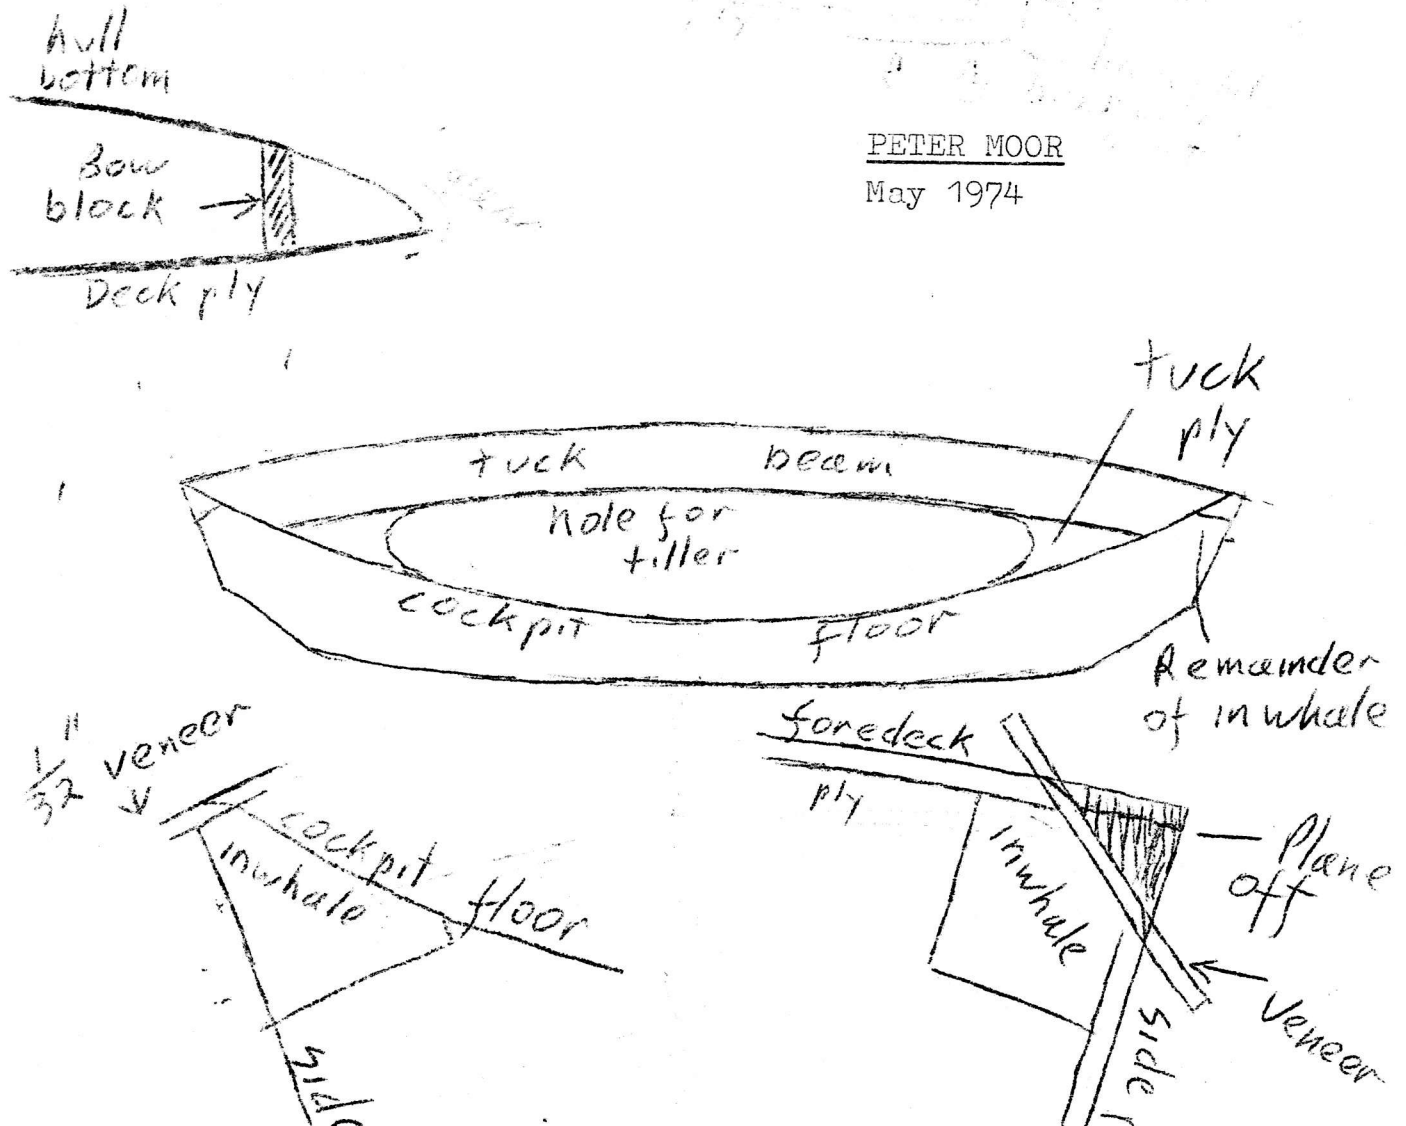 hull
bottom
Bow
block
Deck ply
PETER MOOR
May 1974
tuck
ply
tuck beam
hole for
tiller
cockpit floor
Remainder
of inwhale
1/32" veneer
cockpit floor
inwhale
side
foredeck
ply
inwhale
Plane
off
Veneer
side